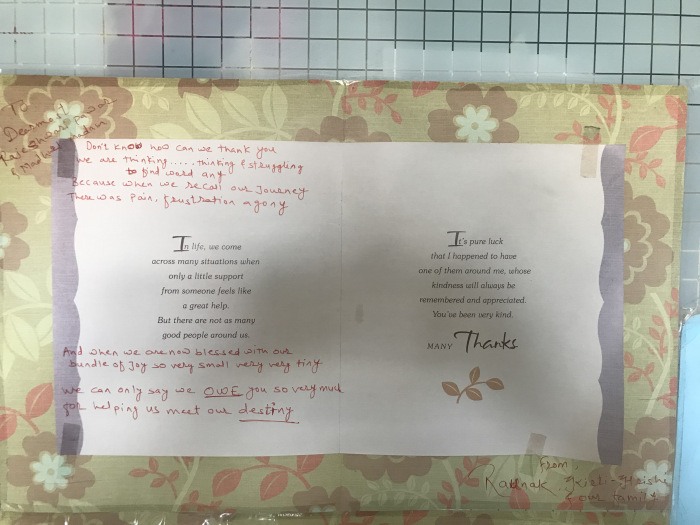 To
Don't know how can we thank you
We are thinking..... thinking & struggling
to find word any
Because when we recall our Journey
There was Pain, frustration agony
In life, we come
across many situations when
only a little support
from someone feels like
a great help.
But there are not as many
good people around us.
And when we are now blessed with our
bundle of Joy so very small very very tiny
We can only say we OWE you so very much
for helping us meet our destiny
It's pure luck
that I happened to have
one of them around me, whose
kindness will always be
remembered and appreciated.
You've been very kind.
MANY Thanks
From,
Raunak
& our family